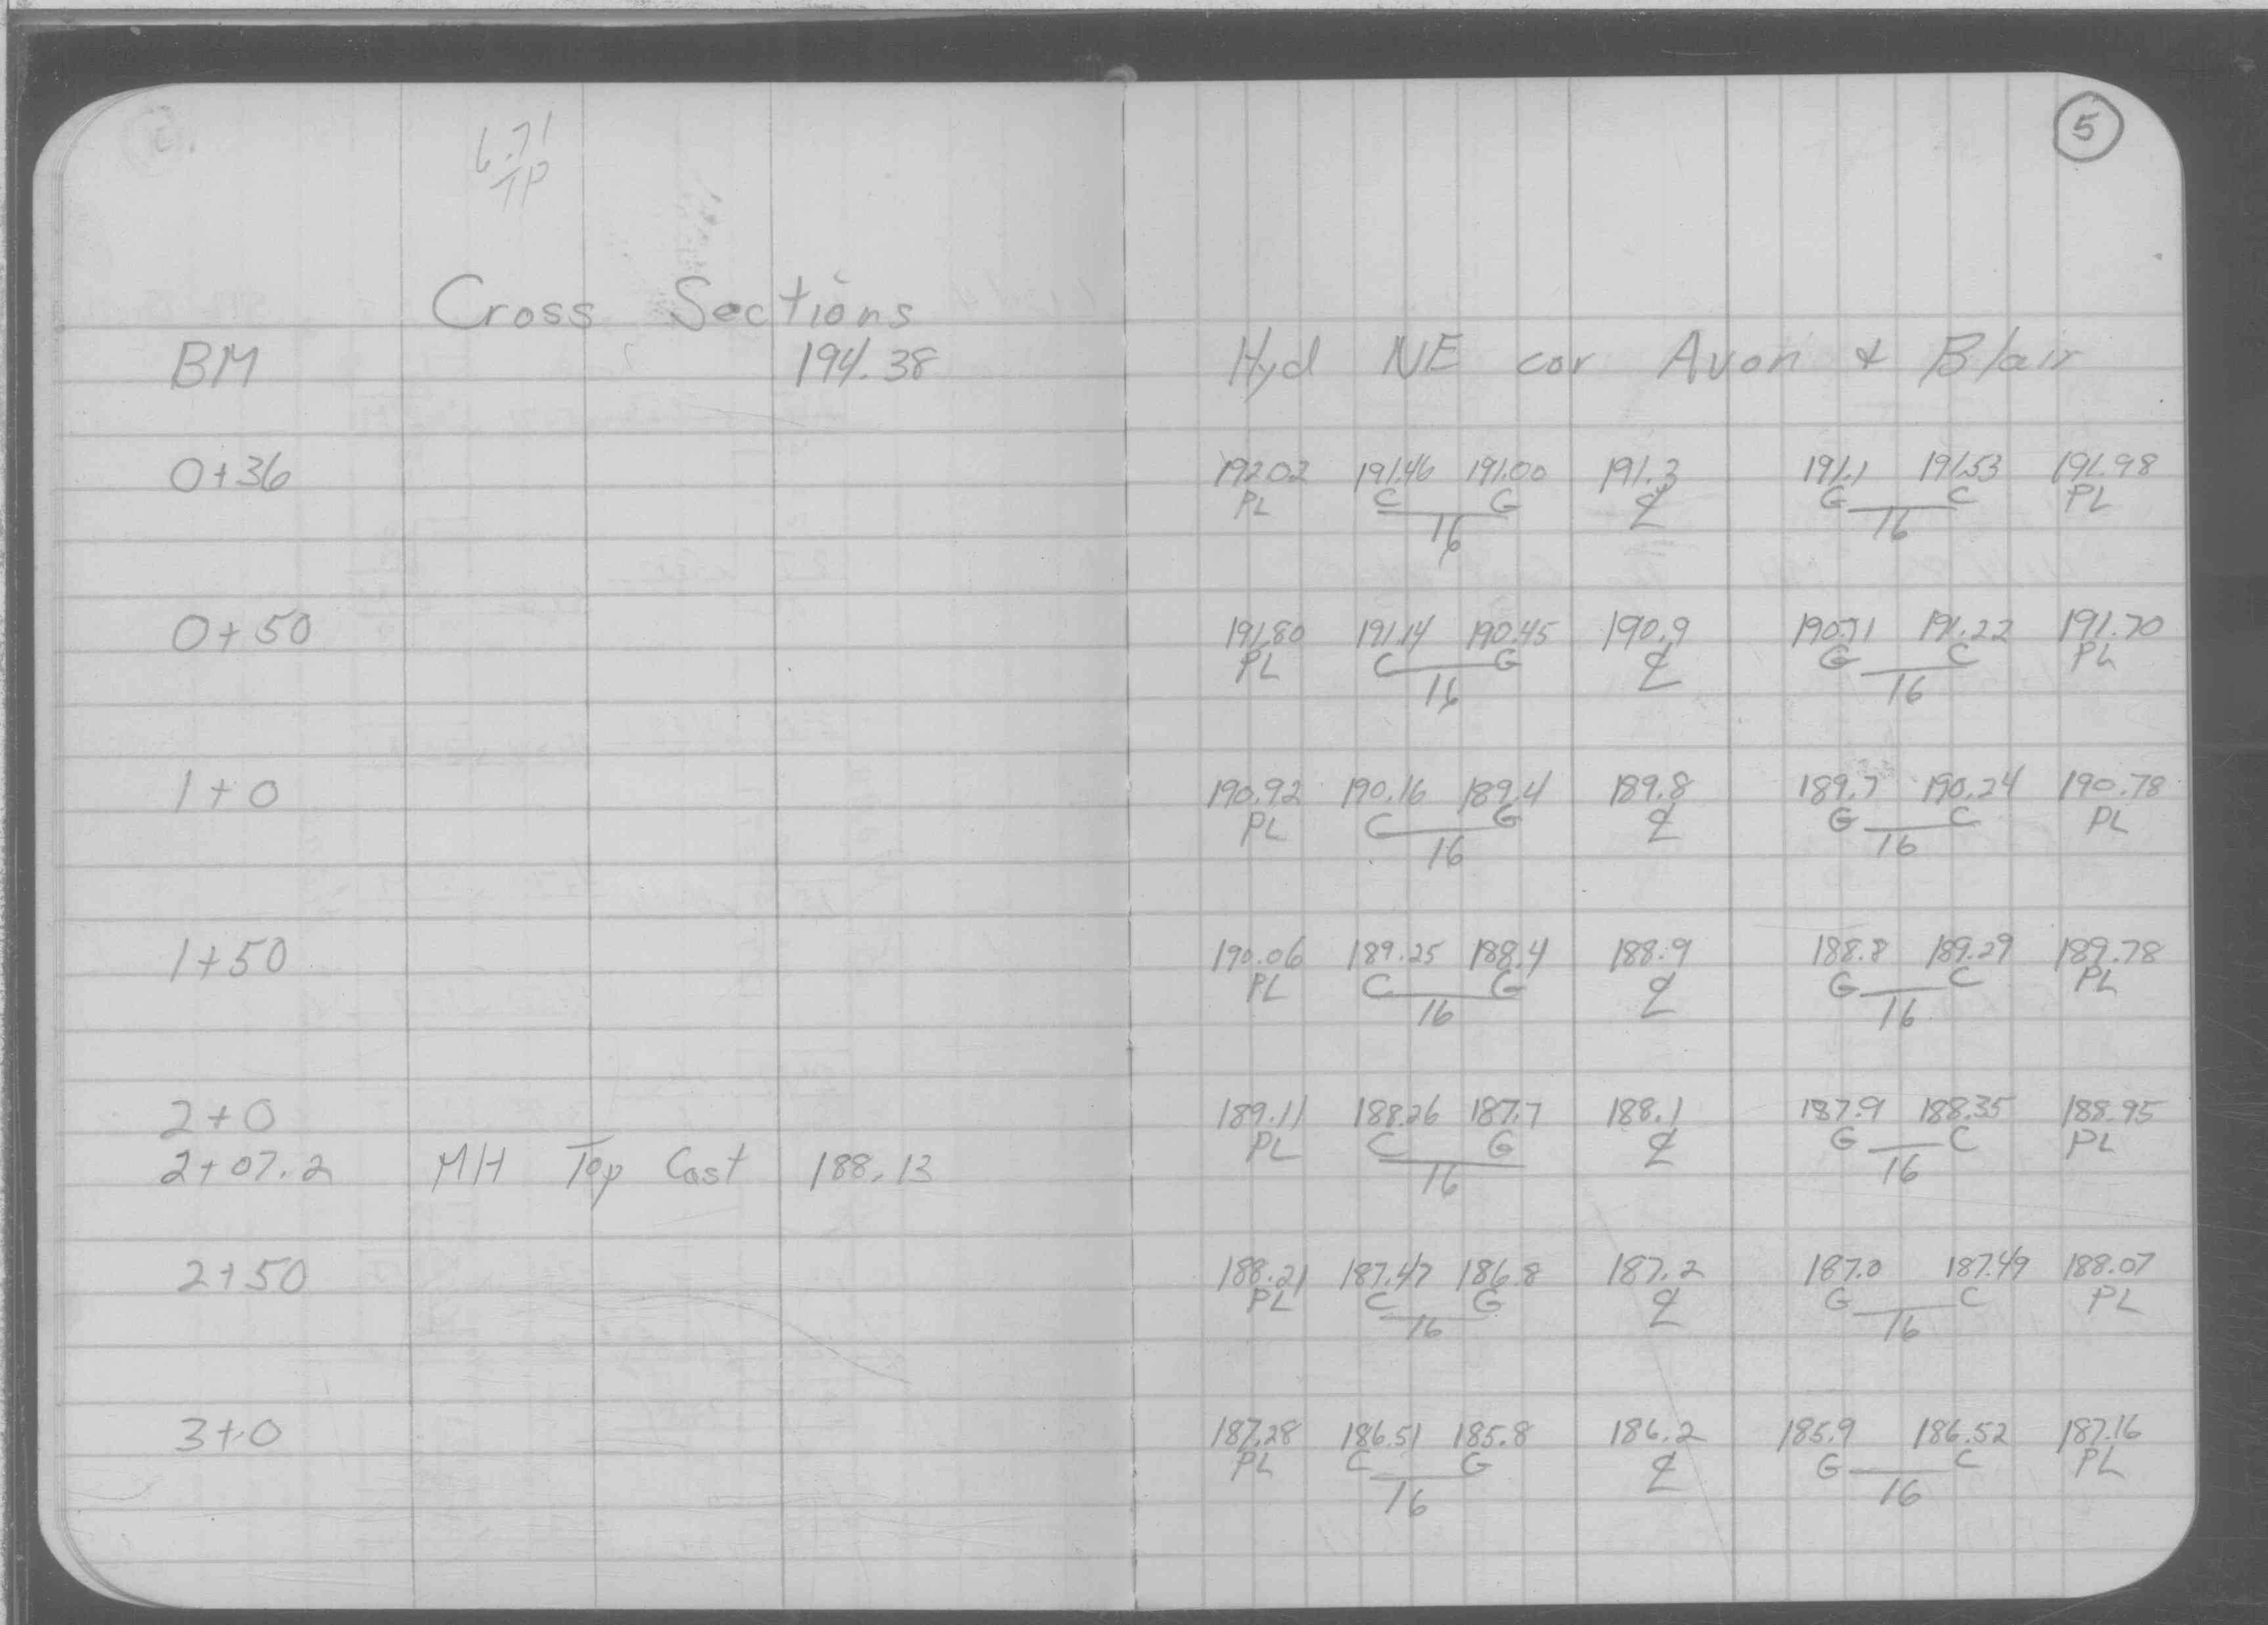 5
6.71
TP
Cross Sections
BM 194.38 Hyd NE cor Avon & Blair
0+36 192.02 191.46 191.00 191.3 191.1 191.53 191.98
PL C G ℄ G C PL
16 16
0+50 191.80 191.14 190.45 190.9 190.71 191.22 191.70
PL C G ℄ G C PL
16 16
1+0 190.92 190.16 189.4 189.8 189.7 190.24 190.78
PL C G ℄ G C PL
16 16
1+50 190.06 189.25 188.4 188.9 188.8 189.29 189.78
PL C G ℄ G C PL
16 16
2+0 189.11 188.26 187.7 188.1 187.9 188.35 188.95
PL C G ℄ G C PL
2+07.2 MH Top Cast 188.13 16 16
2+50 188.21 187.47 186.8 187.2 187.0 187.49 188.07
PL C G ℄ G C PL
16 16
3+0 187.28 186.51 185.8 186.2 185.9 186.52 187.16
PL C G ℄ G C PL
16 16